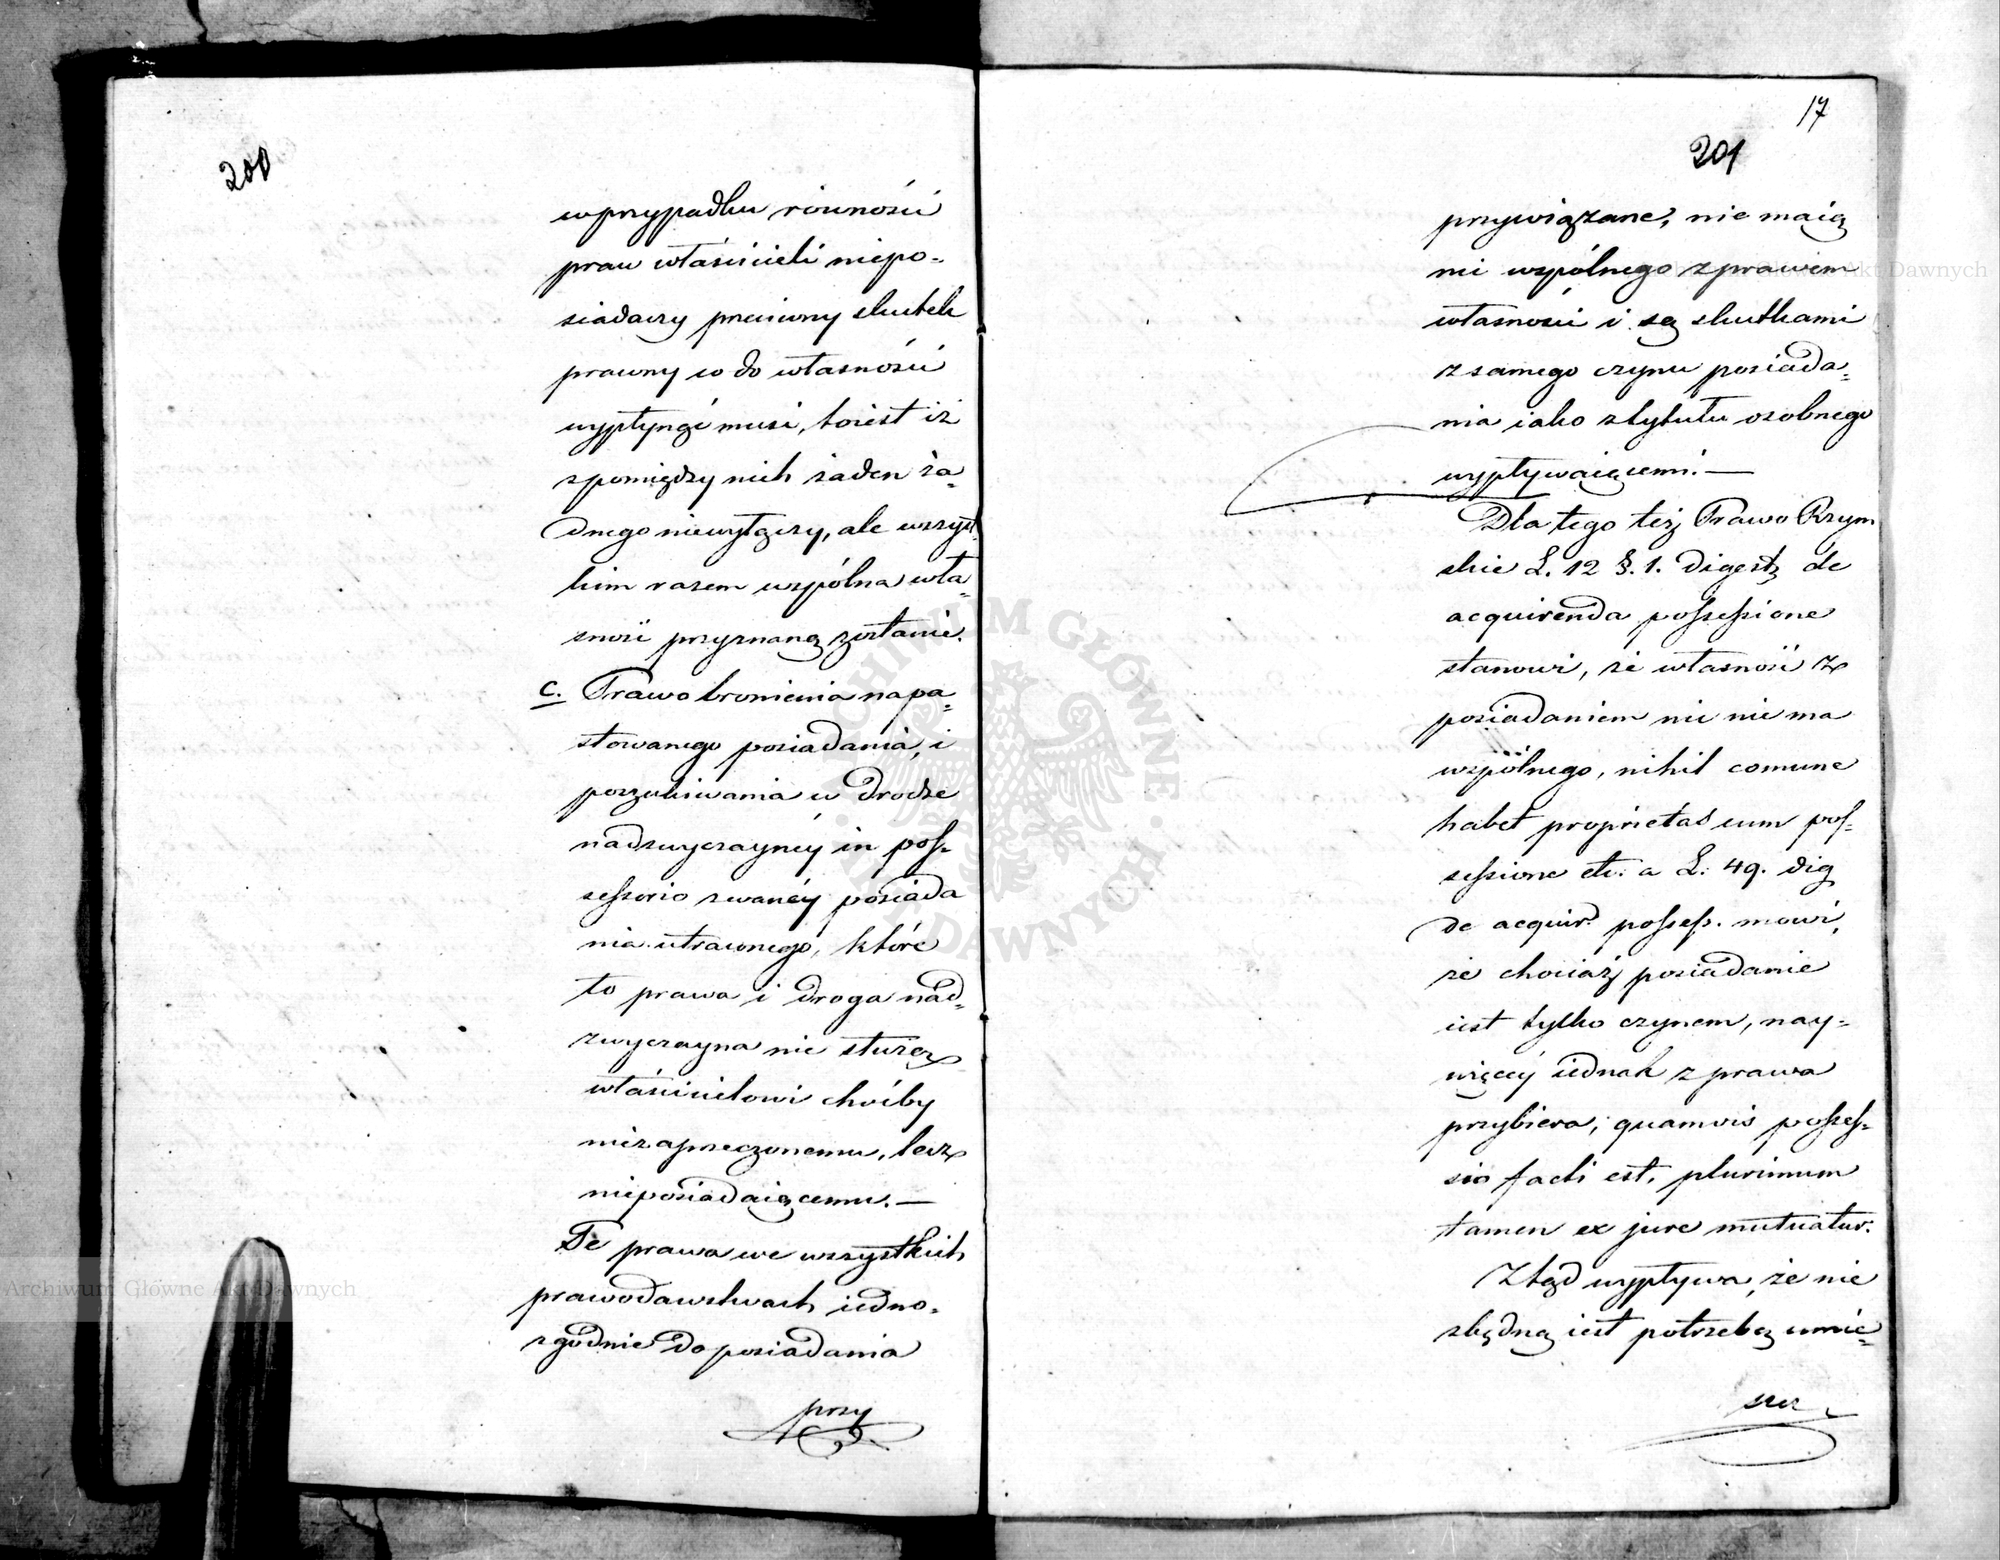 200
w przypadku równości
praw właścicieli niepo=
siadaczy przeciwny skutek
prawny co do własności
wypłynąć musi, toiest iż
z pomiędzy nich żaden ża=
dnego niewyłączy, ale wszyst=
kim razem wspólna wła=
sność przyznaną zostanie.
c. Prawo bronienia napa=
stowanego posiadania, i
poszukiwania w drodze
nadzwyczaynéy in pos=
sessorio zwanéy posiada
nia utraconego, które
to prawa i droga nad=
zwyczayna nie służą
właścicielowi choćby
niezaprzeczonemu, lecz
nieposiadaiącemu. —
Te prawa we wszystkich
prawodawstwach iedno=
zgodnie do posiadania
przy
17
201
przywiązane, nie maią
nic wspólnego z prawem
własności i są skutkami
z samego czynu posiada=
nia iako z tytułu osobnego
wypływaiącemi. —
Dla tego też Prawo Rzym
skie L. 12 §. 1. Digest de
acquirenda possessione
stanowi, że własność z
posiadaniem nic nie ma
wspólnego, nihil comune
habet proprietas cum pos=
sessione etc. a L. 49. dig
de acquir. possess. mówi,
że chociaż posiadanie
iest tylko czynem, nay=
więcéy iednak z prawa
przybiera; quamvis posses=
sio facti est, plurimum
tamen ex jure mutuatur.
Ztąd wypływa, że nie
zbędną iest potrzebą umie=
szcz
ARCHIWUM GŁÓWNE AKT DAWNYCH
Archiwum Główne Akt Dawnych
Archiwum Główne Akt Dawnych